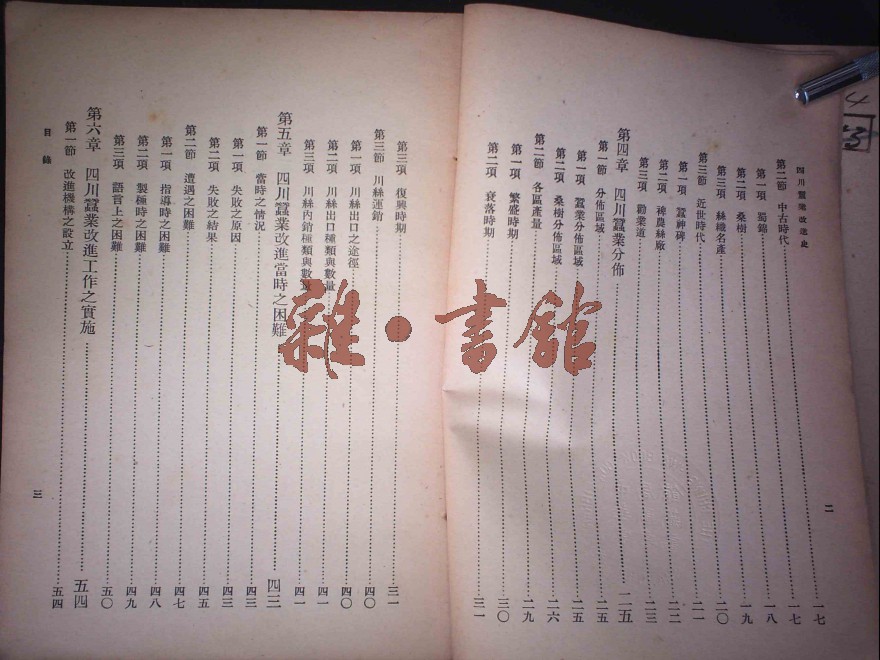 四川蠶業改進史
第二節 中古時代 一七
第一項 蜀錦 一七
第二項 桑樹 一八
第三項 絲織名產 一九
第三節 近世時代 二〇
第一項 蠶神碑 二一
第二項 裨農絲廠 二二
第三項 勸業道 二三
第四章 四川蠶業分佈 二五
第一節 分佈區域 二五
第一項 蠶業分佈區域 二五
第二項 桑樹分佈區域 二六
第二節 各區產量 二九
第一項 繁盛時期 三〇
第二項 衰落時期 三一
二
第三項 復興時期 三一
第三節 川絲運銷 四〇
第一項 川絲出口之途徑 四〇
第二項 川絲出口種類與數量 四一
第三項 川絲內銷種類與數量 四一
第五章 四川蠶業改進當時之困難 四三
第一節 當時之情況 四三
第一項 失敗之原因 四三
第二項 失敗之結果 四五
第二節 遭遇之困難 四七
第一項 指導時之困難 四八
第二項 製種時之困難 四九
第三項 語言上之困難 五〇
第六章 四川蠶業改進工作之實施 五四
第一節 改進機構之設立 五四
目錄
三
雜·書館
4